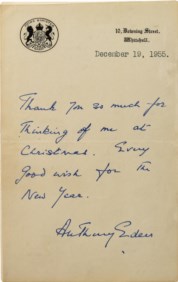 10, Downing Street,
Whitehall.
December 19, 1955.
Thank you so much for
thinking of me at
Christmas. Every
good wish for the
New Year.
Anthony Eden